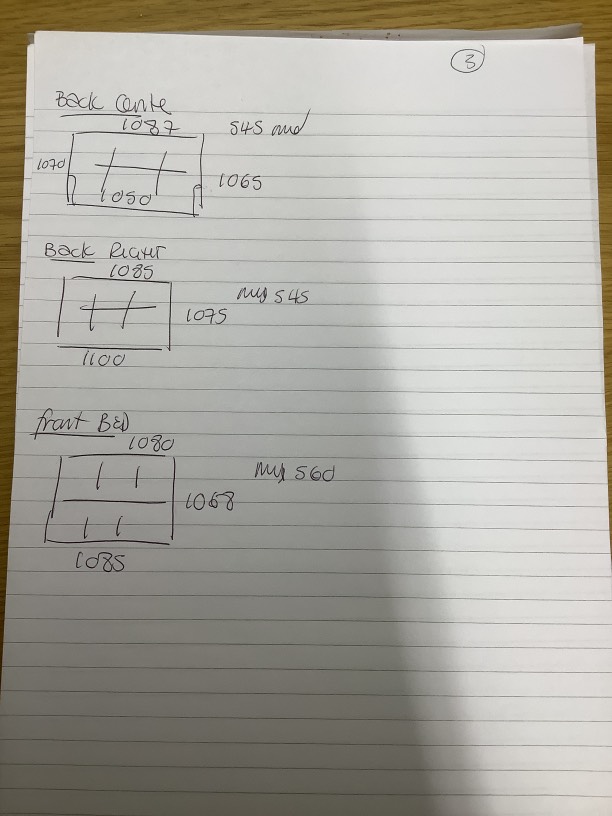 3
Back Centre
1087
545 mid
1070
1065
1050
Back Right
1085
mid 545
1075
1100
front BED
1080
mid 560
1068
1085